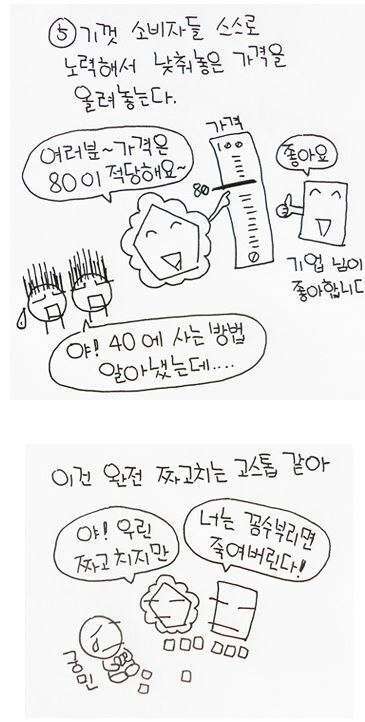 ⑤ 기껏 소비자들 스스로
노력해서 낮춰놓은 가격을
올려놓는다.
여러분~가격은
80이 적당해요~
가격
100
80
0
좋아요
기업 님이
좋아합니다
야! 40에 사는 방법
알아냈는데....
이건 완전 짜고치는 고스톱 같아
야! 우린
짜고 치지만
너는 꼼수부리면
죽여버린다!
궁민